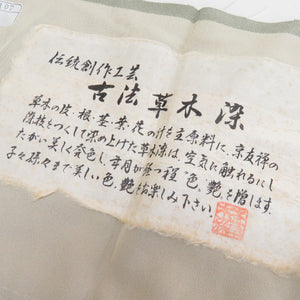 伝統創作工芸
古法草木染
草木の皮、根、茎、葉、花の汁を主原料に、京友禅の
技をつくして染め上げた草木染は、空気に触れるにし
たがい美しく発色し、年月が経つ程、色、艶を増します。
子々孫々まで美しい色、艶お楽しみ下さい。